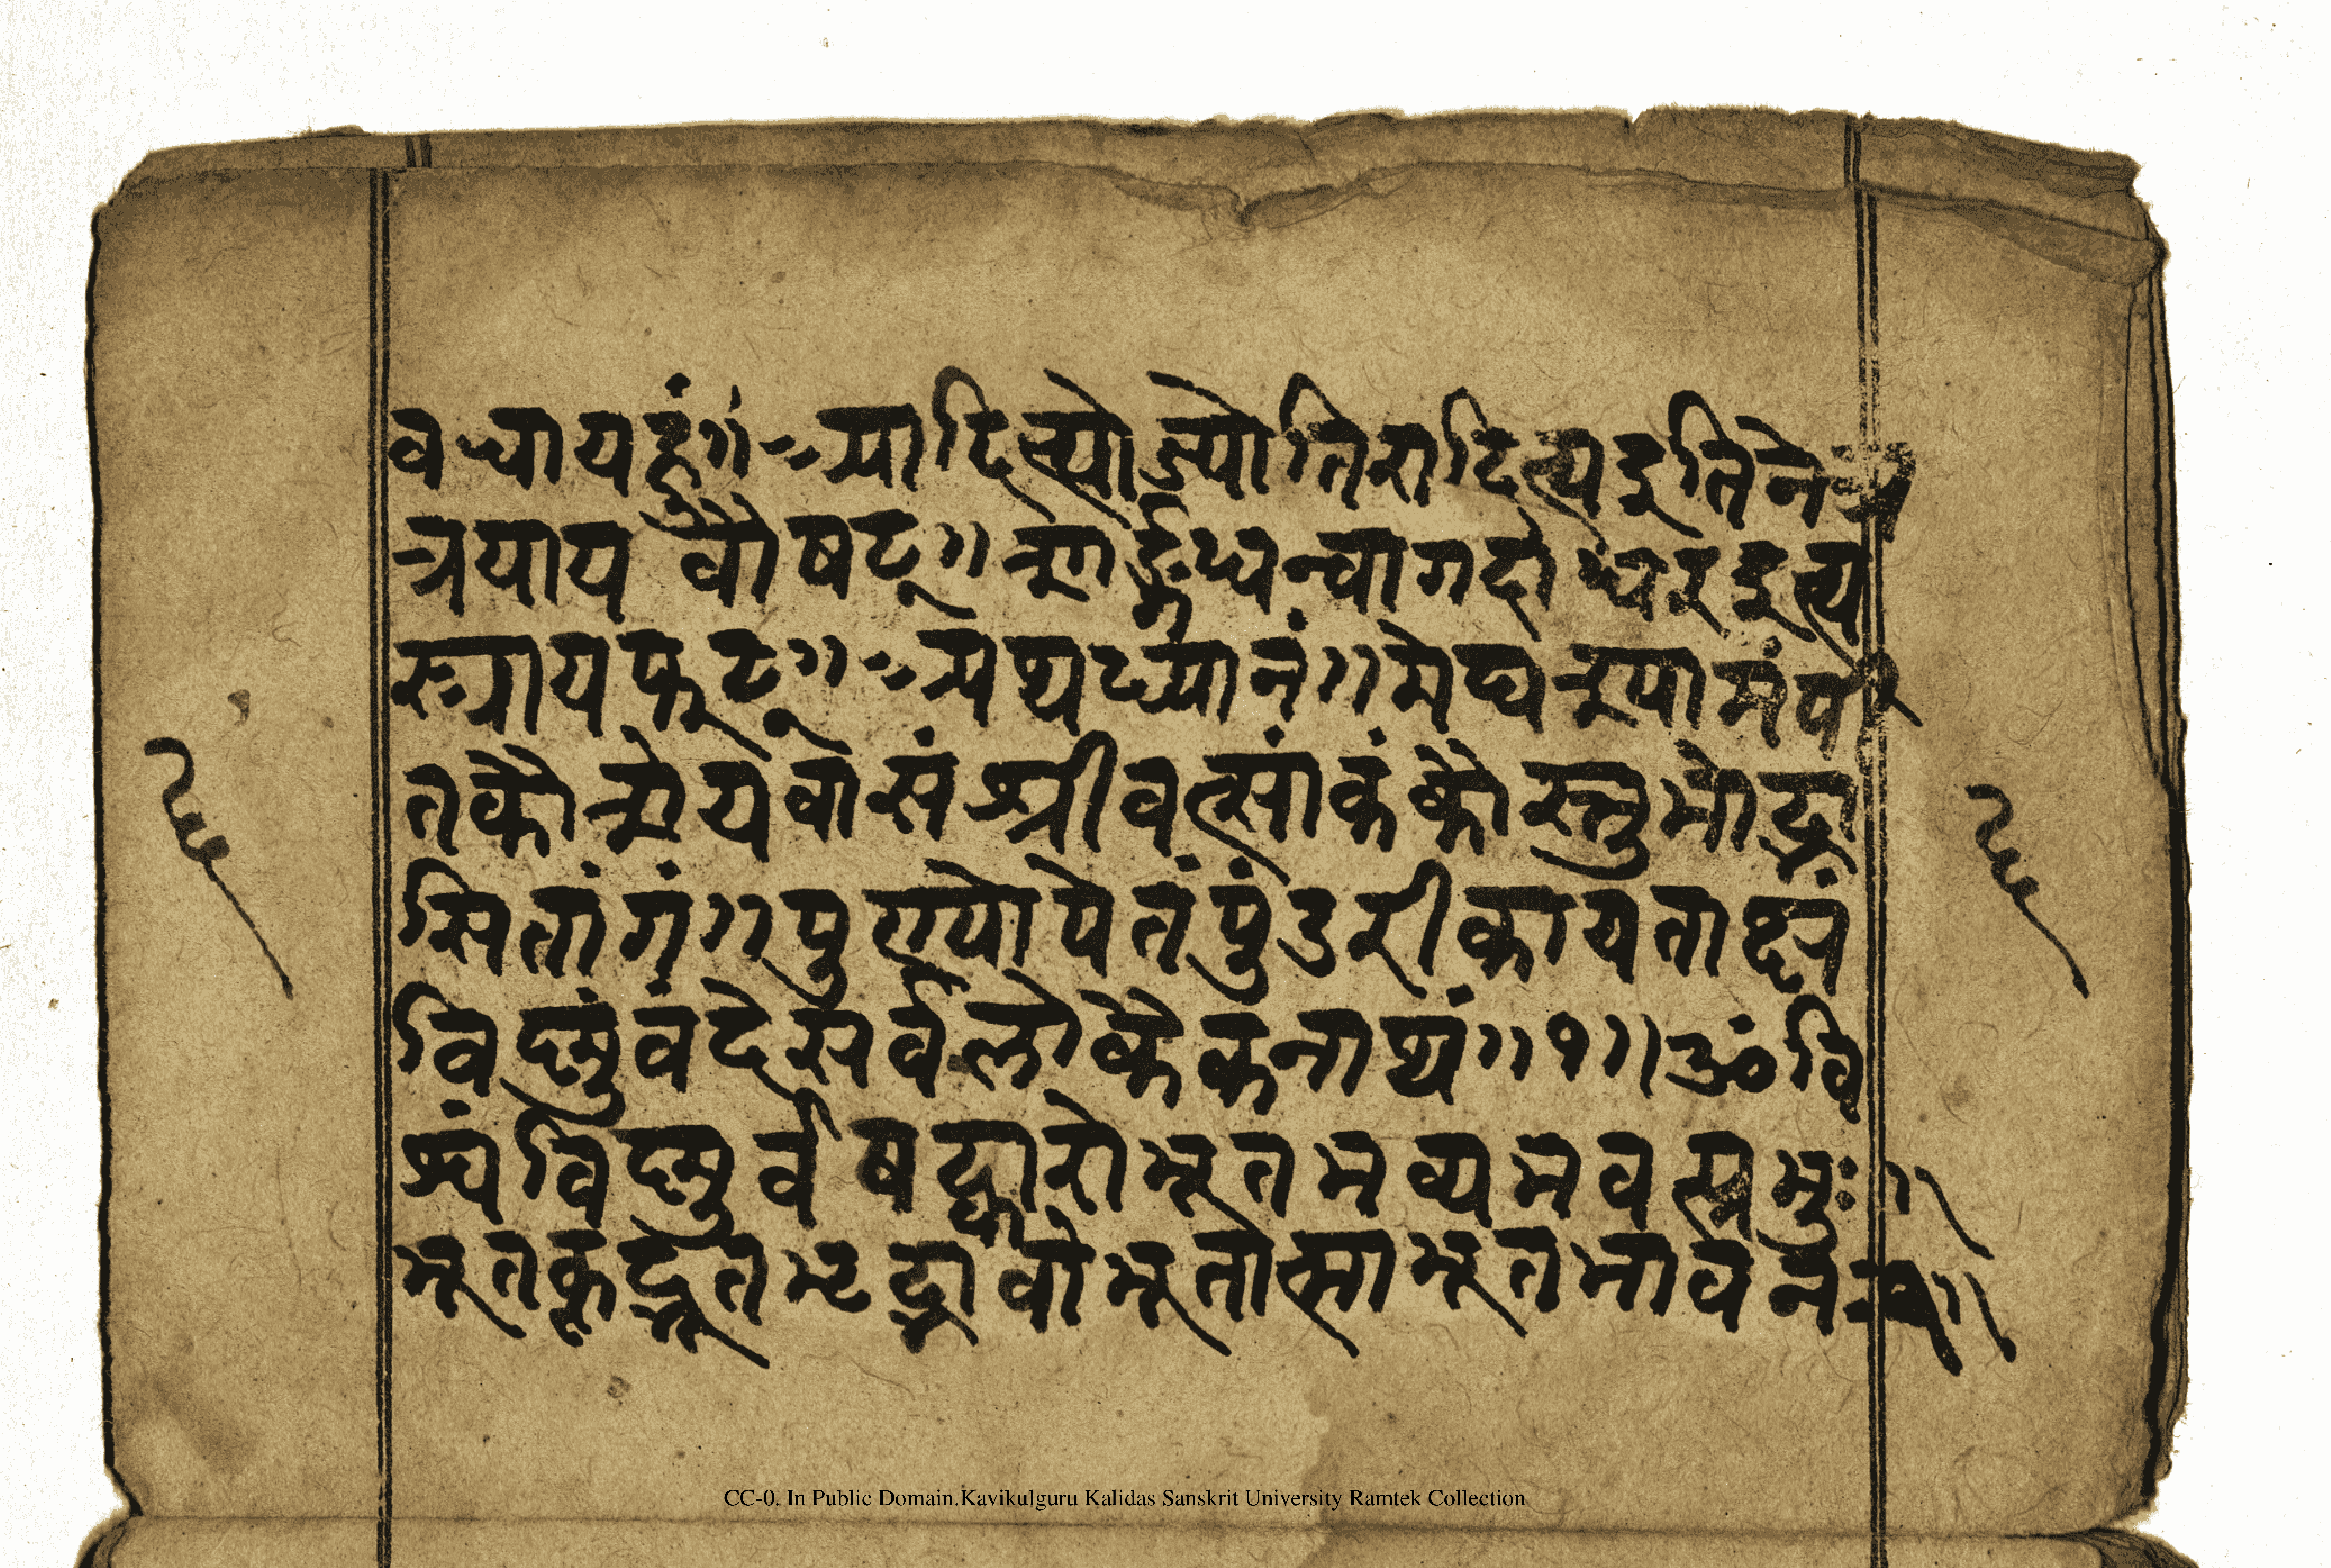 वचायहूं॥ आदित्योज्योतिरादित्यइतिनेत्र
त्रयायवौषट्॥ शार्ङ्गधन्वागदाधरइत्य
स्त्रायफट्॥ अथध्यानं॥ मेघश्यामंपी
तकौशेयवासंश्रीवत्सांकंकौस्तुभोद्भा
सितांगं॥ पुण्योपेतंपुंडरीकायताक्षं
विष्णुंवंदेसर्वलोकैकनाथं॥ १॥ ॐवि
श्वंविष्णुर्वषट्कारोभूतभव्यभवत्प्रभुः॥
भूतकृद्भूतभृद्भावोभूतात्माभूतभावनः॥
CC-0. In Public Domain.Kavikulguru Kalidas Sanskrit University Ramtek Collection